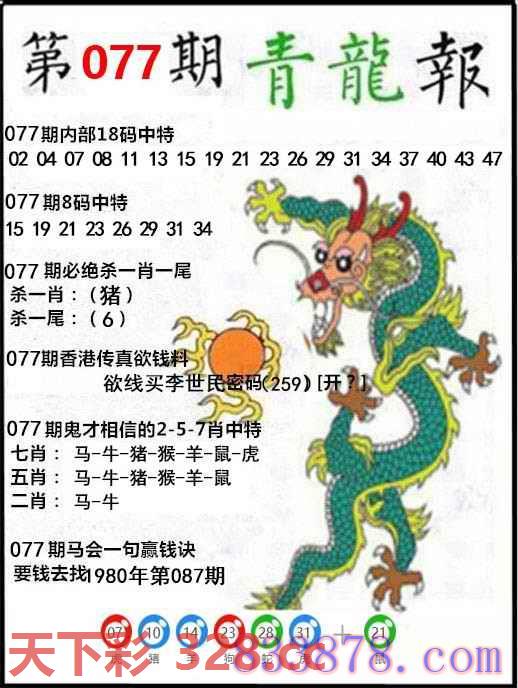 第077期 青龍報
077期内部18码中特
02 04 07 08 11 13 15 19 21 23 26 29 31 34 37 40 43 47
077期8码中特
15 19 21 23 26 29 31 34
077期必绝杀一肖一尾
杀一肖：(猪)
杀一尾：(6)
077期香港传真欲钱料
欲线买李世民密码(259)[开?]
077期鬼才相信的2-5-7肖中特
七肖： 马-牛-猪-猴-羊-鼠-虎
五肖： 马-牛-猪-猴-羊-鼠
二肖： 马-牛
077期马会一句赢钱诀
要钱去找1980年第087期
07 10 14 23 28 31 + 21
猪 羊 狗 蛇 鼠
天下彩
833878.com